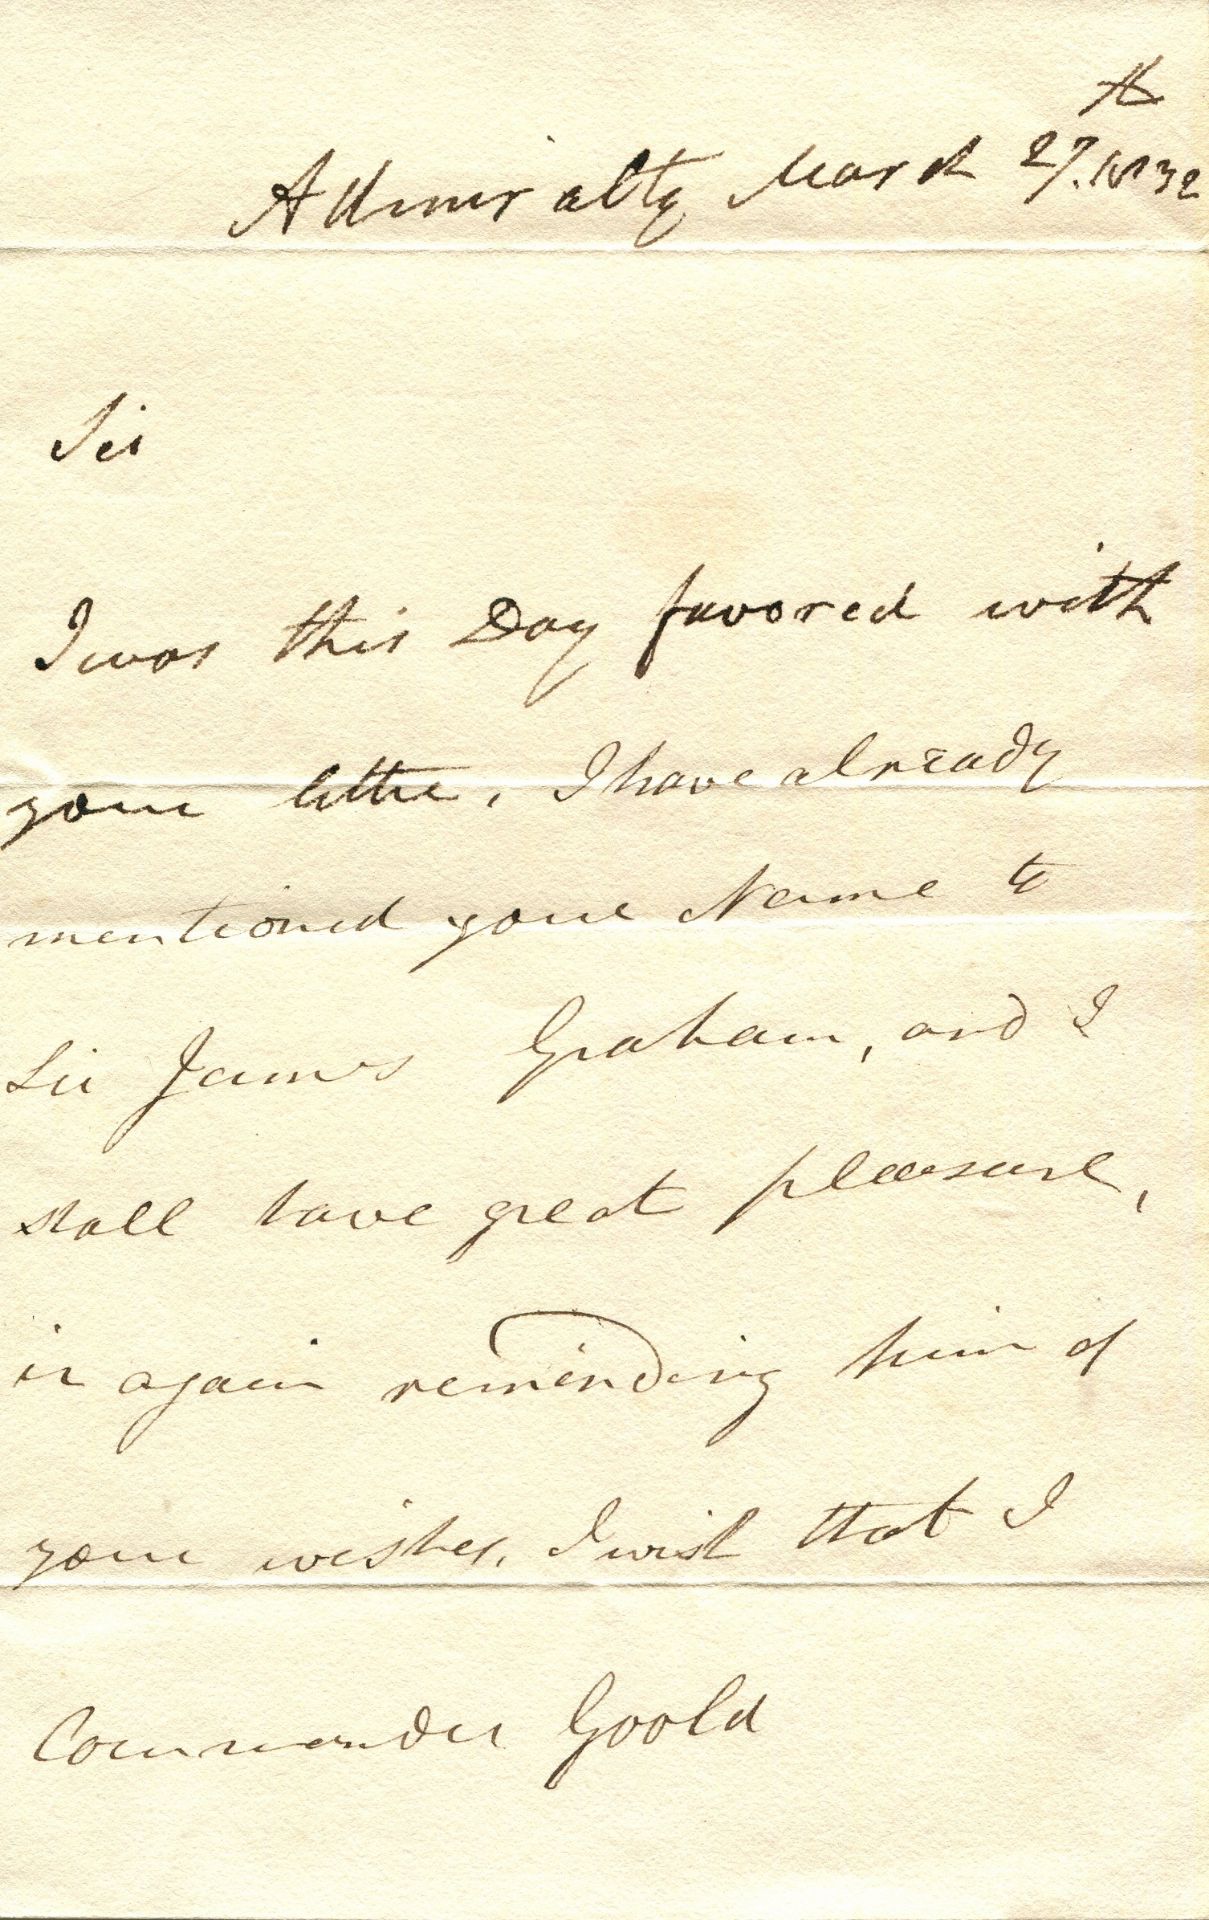 Admiralty March 27th. 1832
Sir
I was this Day favored with
your letter, I have already
mentioned your Name to
Sir James Graham, and I
shall have great pleasure,
in again reminding him of
your wishes, I wish that I
Commander Goold